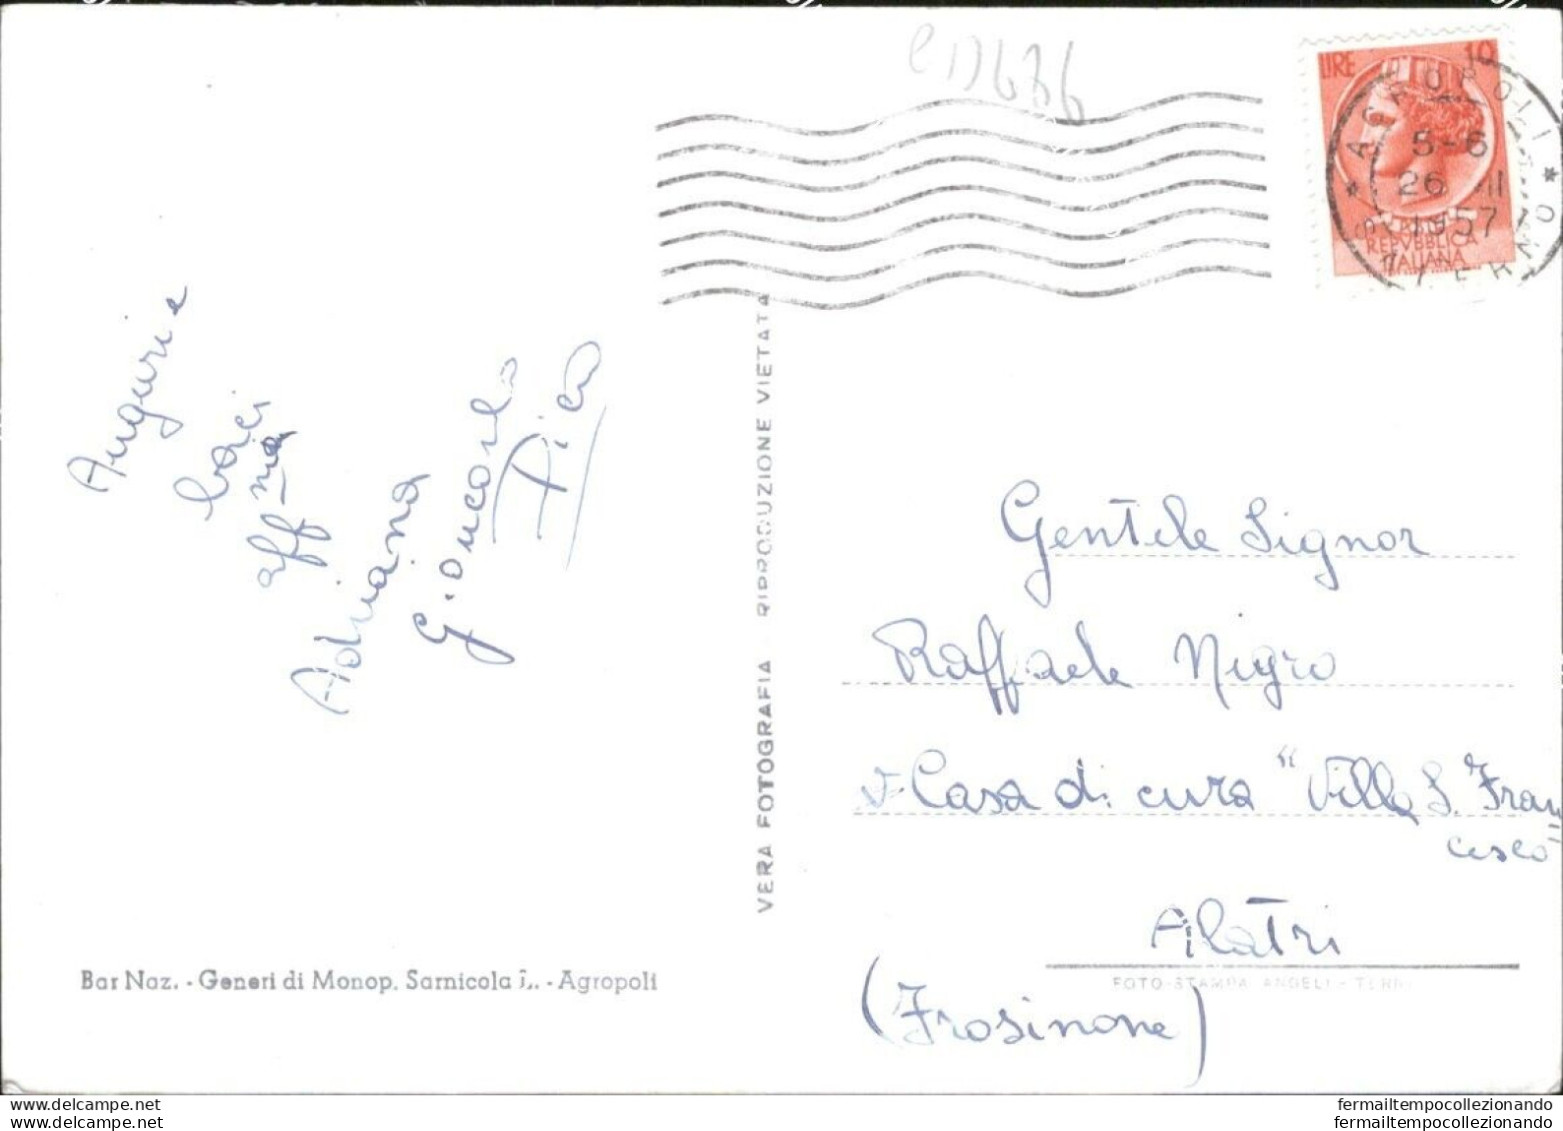 LIRE 10
REPVBBLICA
ITALIANA
* AGROPOLI *
SALERNO
5-6
26
1957
Auguri e
baci
aff.
Adriana
Giancarlo
VERA FOTOGRAFIA - RIPRODUZIONE VIETATA
Gentile Signor
Raffaele Nigro
Casa di cura "Villa S. Fran
cesco"
Alatri
(Frosinone)
Bar Naz. - Generi di Monop. Sarnicola L. - Agropoli
FOTO-STAMPA ANGELI - TERNI
fermailtempocollezionando
fermailtempocollezionando
www.delcampe.net
www.delcampe.net